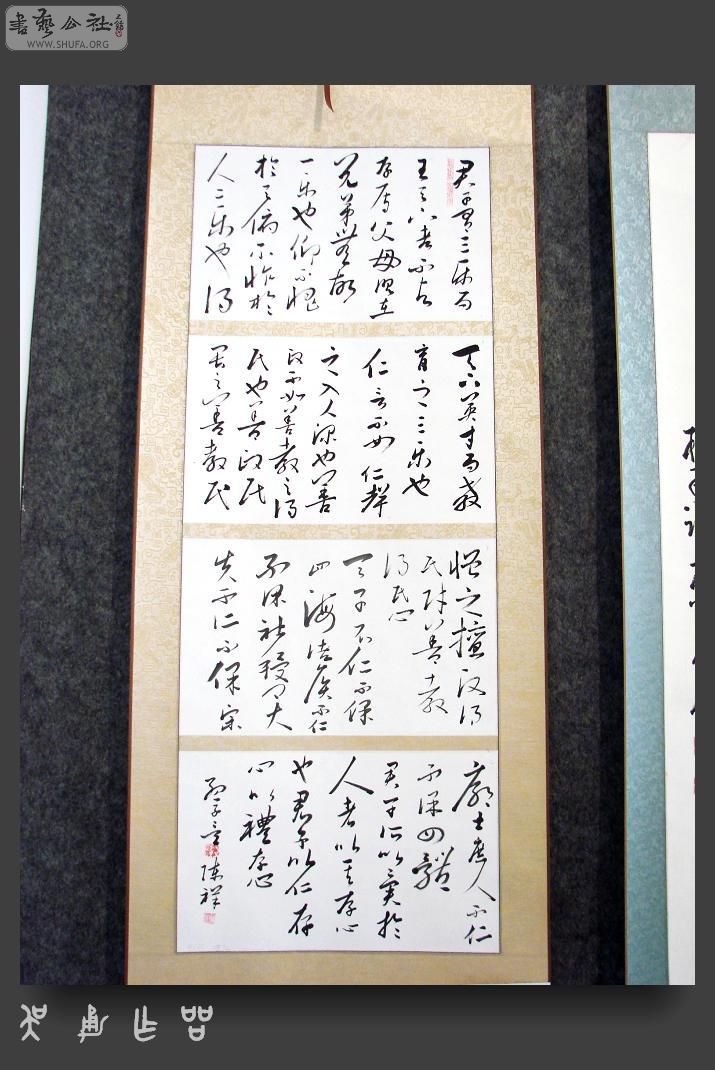 書藝公社
WWW.SHUFA.ORG
君子有三樂而
王天下者不與
存焉父母俱在
兄弟無故
一樂也仰不愧
於天俯不怍於
人二樂也得
天下英才而教
育之三樂也
仁言不如仁聲
之入人深也善
政不如善教之得
民也善政民
畏之善教民
愛之政得
民財善教
得民心
天子不仁不保
四海諸侯不仁
不保社稷卿大
夫不仁不保宗
廟士庶人不仁
不保四體
君子所以異於
人者以其存心
也君子以仁存
心以禮存心
孟子言 陳祥